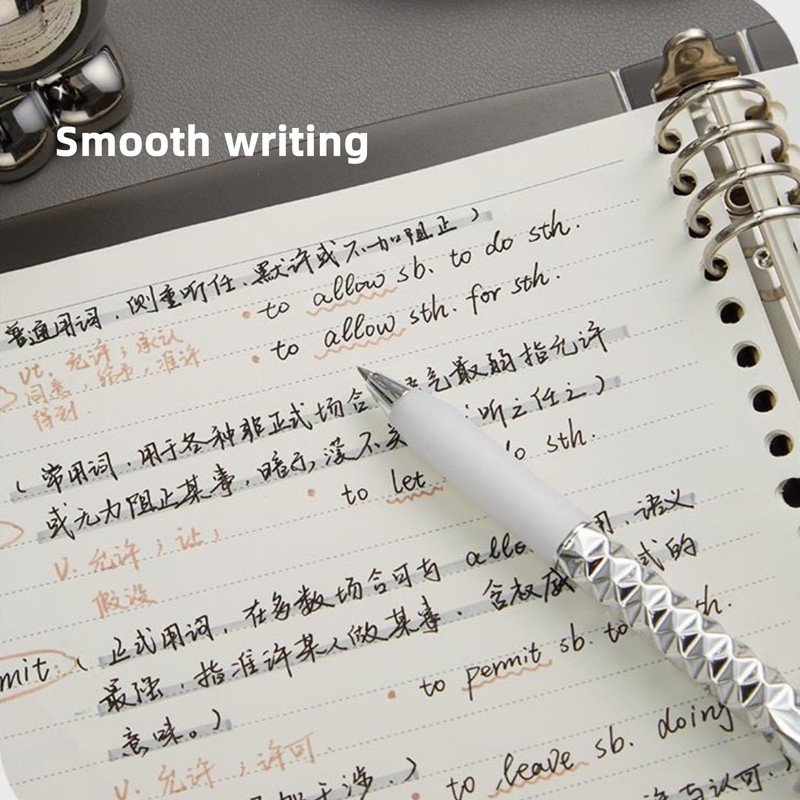 Smooth writing
普通用词，侧重听任、默许或不加阻止）
• to allow sb. to do sth.
• to allow sth. for sth.
vt. 允许；承认
同意，给予，准许
得到
（常用词，用于各种非正式场合 语气最弱 指允许
或无力阻止某事，暗示 听之任之）
• to let do sth.
v. 允许；让；
假设
mit:（正式用词，在多数场合可与 allo 用，语义
最强，指准许某人做某事，含权威 式的
意味。）
• to permit sb. to th.
v. 允许；许可
干涉。）
• to leave sb. doing
许与认可.）